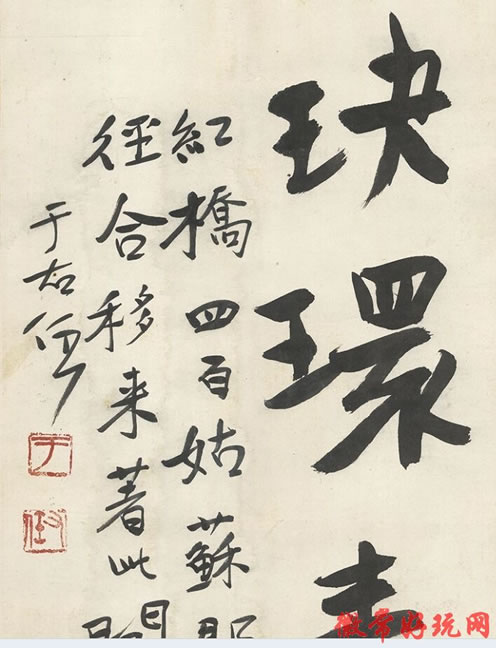 玦環
紅橋四百姑蘇
徑合移來著此
于右任
于
微常好玩网